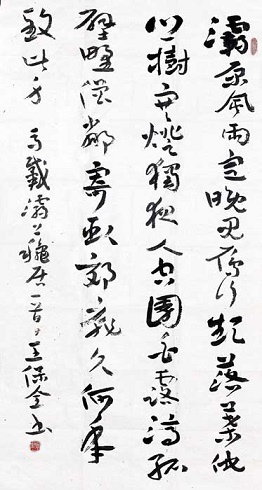 灞原風雨定晚見雁行頻落葉他
鄉樹寒燈獨夜人空園白露滴孤
壁野僧鄰寄臥郊扉久何年
致此身 馬戴灞上穐居一首 王保全书